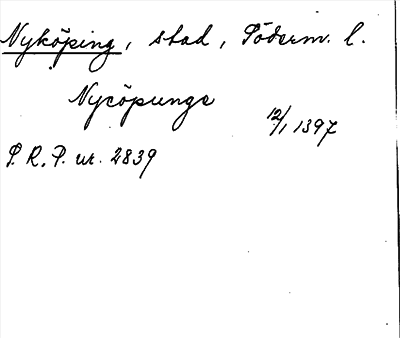 Nyköping, stad, Söderm. l.
Nycöpunge
12/1 1397
S. R. P. nr. 2839